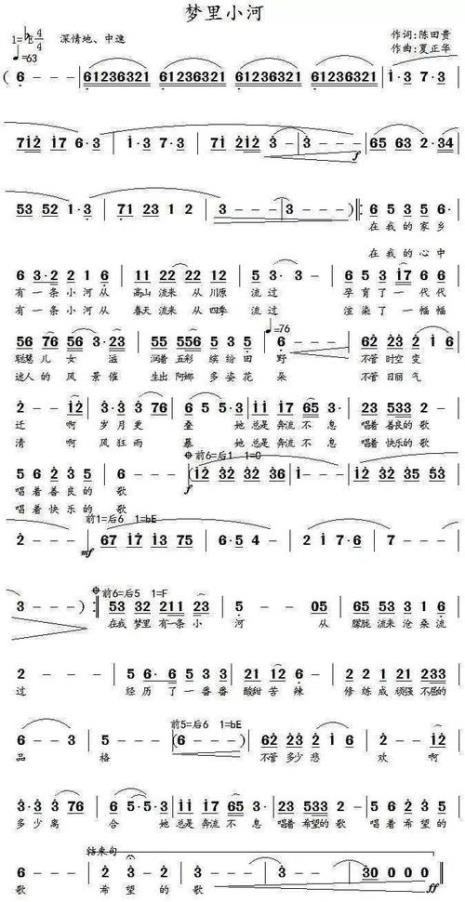 梦里小河
1=♭E 4/4 深情地、中速
作词:陈田贵
作曲:夏正华
♩=63
( 6 - - - | 61236321 61236321 61236321 61236321 | i·3 7·3 |
7i2 i7 6·3 | i·3 7·3 | 7i 2i2 3 - | 3 - - - | 65 63 2·34 |
f
53 52 1·3 | 71 23 1 2 | 3 - - - | 3 - - - ) ‖: 6 5 3 5 6· |
在我的家乡
在我的心中
6 3·2 2 1 6 | 11 22 22 12 | 5 3· 3 - | 6 5 3 i7 6 |
有一条小河从 高山流来 从川原 流过 孕育了一代代
有一条小河从 春天流来 从四季 流过 渲染了一幅幅
♩=76
56 76 56 3·23 | 55 556 5 3 5 | 6 - - - | 62 23 2 i 6 |
聪慧儿女 滋 润着五彩 缤纷田 野 不管时空变
迷人的风景催 生出阿娜 多姿花 朵 不管日丽气
2 - - i2 | 3·3 3 76 | 6 5 5·3 | ii i7 65 3· | 23 533 2 - |
迁 啊 岁月更 叠 她总是奔流不息 唱着善良的歌
清 啊 风狂雨 暴 她总是奔流不息 唱着快乐的歌
前6=后1 1=G
5 6 2 3 5 | 6 - - - | (i2 32 32 36 | i - - - | i2 32 35 53 |
唱着善良的 歌
唱着快乐的 歌
f
前1=后6 1=♭E
2 - - - | 67 i7 i3 75 | 6·5 4 - | 2 i 7·6 | 7 - - - |
mf
前6=后5 1=F
3 - - - ) :‖ 53 32 211 23 | 5 - - 05 | 65 53 3 1 6 |
在我梦里有一条小 河 从 朦胧流来沧桑流
2 - - - | 5 6· 6 5 3 3 | 21 12 6 - | 2 2 1 21 233 |
过 经历了一番番 酸甜苦辣 修炼成顽强不屈的
前5=后6 1=♭E
6 - - 3 | 5 - - - | (6 - - -) | 62 23 2 i 6 | 2 - - i2 |
品 格 不管多少悲 欢 啊
3·3 3 76 | 6 5·5·3 | ii i7 65 3· | 23 533 2 - | 5 6 2 3 5 |
多少离 合 她总是奔流不息 唱着希望的歌 唱着希望的
结束句
6 - - - | 2 3 - 2 | 3 - - - | 3 - - - | 30 0 0 0 ‖
歌 希望的歌